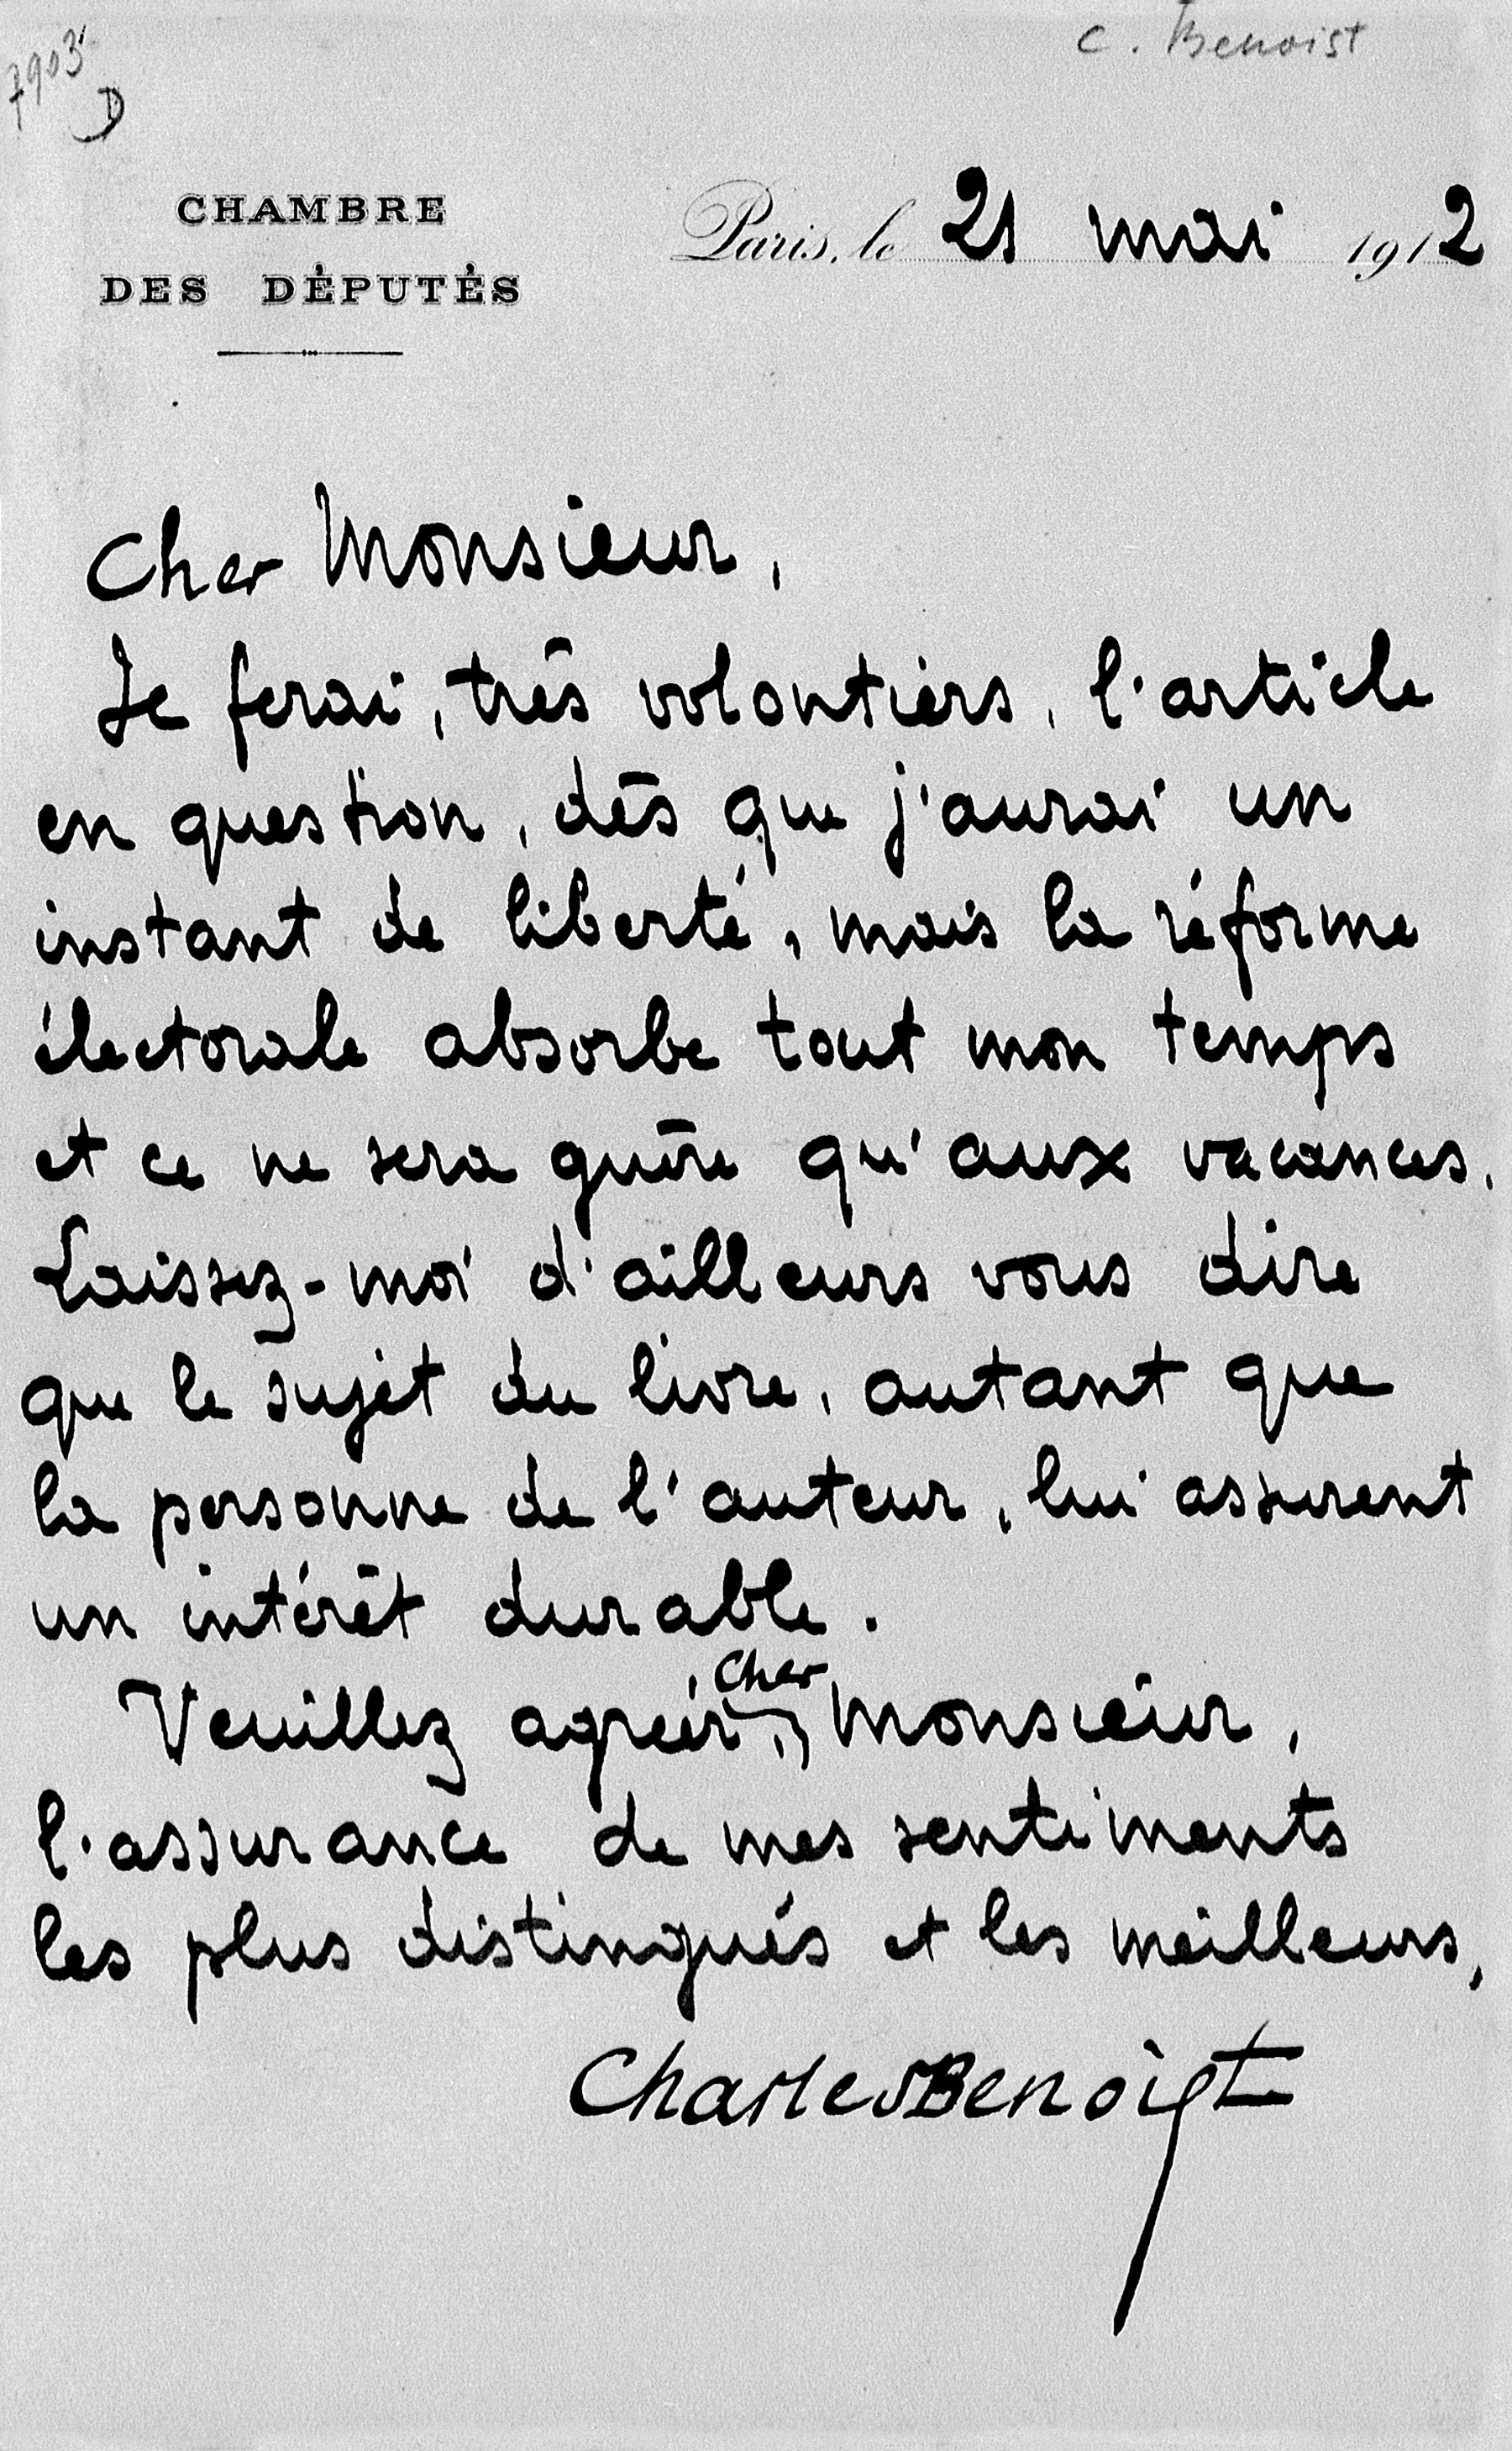 7903
D
C. Benoist
CHAMBRE
DES DÉPUTÉS
Paris, le 21 mai 1912
Cher Monsieur,
Je ferai, très volontiers, l'article
en question, dès que j'aurai un
instant de liberté, mais la réforme
électorale absorbe tout mon temps
et ce ne sera guère qu'aux vacances.
Laissez-moi d'ailleurs vous dire
que le sujet du livre, autant que
la personne de l'auteur, lui assurent
un intérêt durable.
Veuillez agréer, Cher Monsieur,
l'assurance de mes sentiments
les plus distingués et les meilleurs,
Charles Benoist